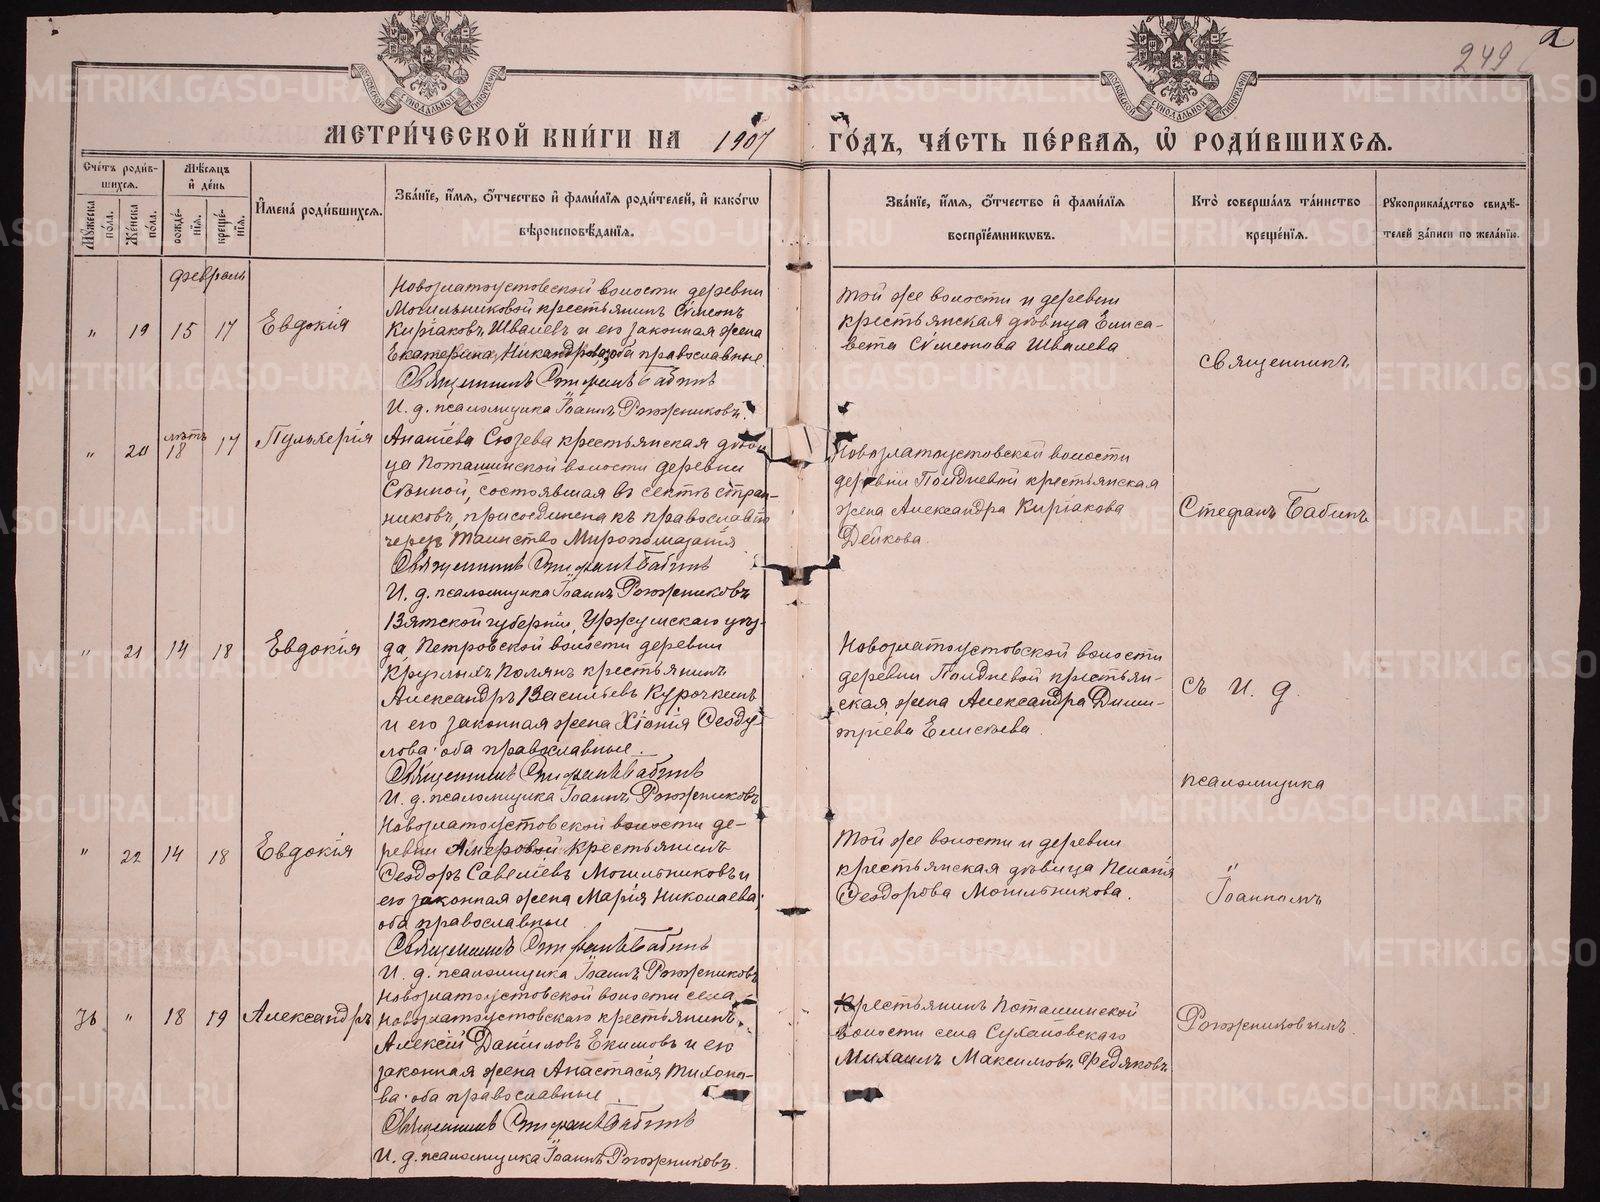 249
МЕТРИ́ЧЕСКОЙ КНИ́ГИ НА 1907 ГО́ДЪ, ЧА́СТЬ ПЕ́РВАЯ, Ѡ҆ РОДИ́ВШИХСЯ.
Сче́тъ роди́вшихся.
Мѣ́сяцъ и҆ де́нь
Мꙋ́жеска по́ла.
Же́нска по́ла.
рожде́нїя.
креще́нїя.
И҆мена̀ роди́вшихся.
Зва́нїе, и҆́мя, ѻ҆́тчество и҆ фами́лїя роди́телей, и҆ како́гѡ
вѣроисповѣ́данїя.
Зва́нїе, и҆́мя, ѻ҆́тчество и҆ фами́лїя
воспрїе́мникѡвъ.
Кто̀ соверша́лъ та́инство
креще́нїя.
Рꙋкоприкла́дство свидѣ́-
телей за́писи по жела́нїю.
февраль
" 19 15 17 Евдокія
Новозлатоустовской волости деревни
Могильниковой крестьянинъ Сѵмеонъ
Киріаковъ Швалевъ и его законная жена
Екатерина Никандрова, оба православные
Священникъ Стефанъ Бабинъ
И. д. псаломщика Іоаннъ Рожениковъ.
Той же волости и деревни
крестьянская дѣвица Елиса-
вета Сѵмеонова Швалева
священникъ
" 20 лѣтъ 18 17 Пульхерія
Ананіева Сюзева крестьянская дѣви
ца Поташинской волости деревни
Сѣнной, состоявшая въ сектѣ стран-
никовъ, присоединена къ православію
черезъ Таинство Миропомазанія
Священникъ Стефанъ Бабинъ
И. д. псаломщика Іоаннъ Рожениковъ
Новозлатоустовской волости
деревни Полдневой крестьянская
жена Александра Киріакова
Дейкова.
Стефанъ Бабинъ
" 21 14 18 Евдокія
Вятской губерніи, Уржумскаго уѣз-
да Петровской волости деревни
Круглыхъ Полянъ крестьянинъ
Александръ Васильевъ Курочкинъ
и его законная жена Хіонія Ѳеоду
лова: оба православные.
Священникъ Стефанъ Бабинъ
И. д. псаломщика Іоаннъ Рожениковъ
Новозлатоустовской волости
деревни Полдневой крестьян-
ская жена Александра Дими-
тріева Елисѣева.
съ И. д.
псаломщика
" 22 14 18 Евдокія
Новозлатоустовской волости де-
ревни крестьянинъ
Ѳеодоръ Савеліевъ Могильниковъ и
его законная жена Марія Николаева;
оба православные
Священникъ Стефанъ Бабинъ
И. д. псаломщика Іоаннъ Рожениковъ
Той же волости и деревни
крестьянская дѣвица Пелагія
Ѳеодорова Могильникова.
Іоанномъ
" 18 19 Александръ
Новозлатоустовской волости села
Новозлатоустовскаго крестьянинъ
Алексій Даніиловъ Екимовъ и его
законная жена Анастасія Тихоно-
ва: оба православные.
Священникъ Стефанъ Бабинъ
И. д. псаломщика Іоаннъ Рожениковъ.
Крестьянинъ Поташинской
волости села Сухановскаго
Михаилъ Максимовъ Федяковъ
Рожениковымъ.
METRIKI.GASO-URAL.RU